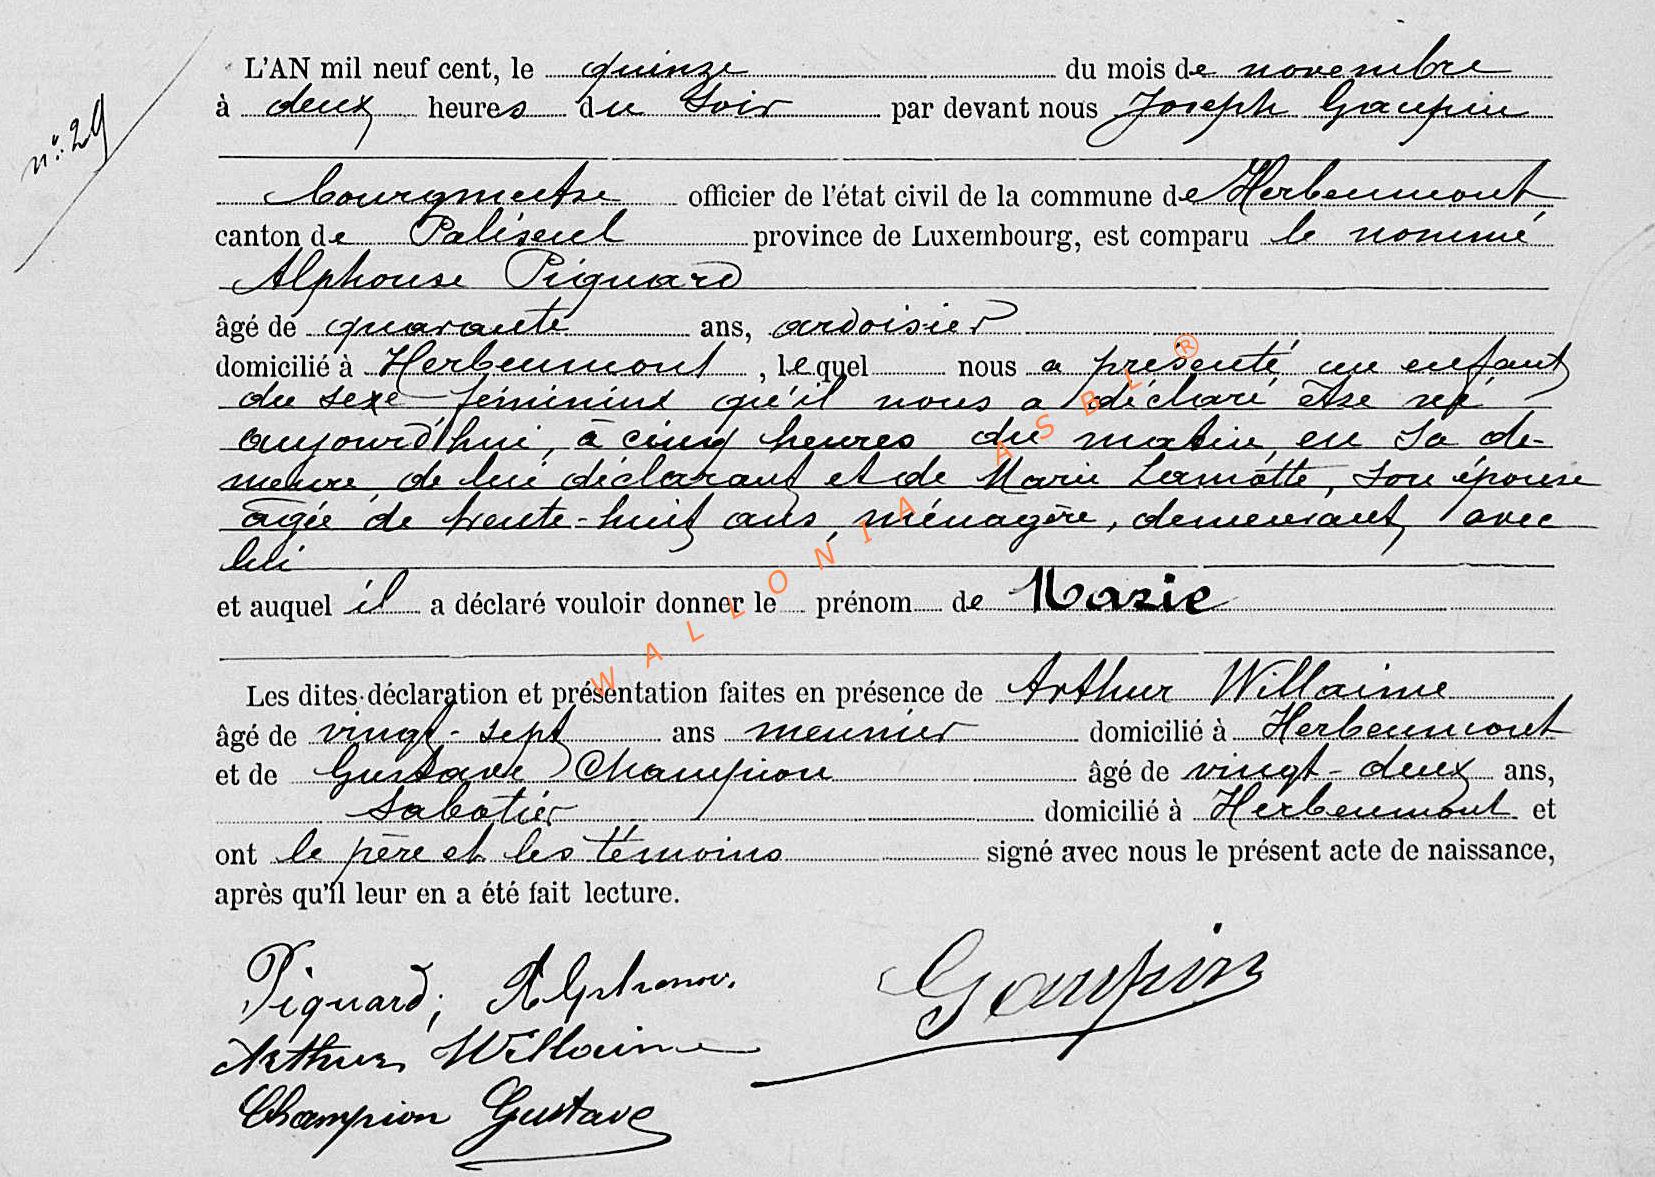 n° 29
L'AN mil neuf cent, le quinze du mois de novembre
à deux heures du soir par devant nous Joseph Gaupin
bourgmestre officier de l'état civil de la commune de Herbeumont,
canton de Paliseul province de Luxembourg, est comparu le nommé
Alphonse Piguard
âgé de quarante ans, ardoisier
domicilié à Herbeumont, lequel nous a présenté un enfant
du sexe féminine qu'il nous a déclaré être né
aujourd'hui, à cinq heures du matin, en sa de-
meure, de lui déclarant et de Marie Lamotte, son épouse
âgée de trente-huit ans, ménagère, demeurant avec
lui
et auquel il a déclaré vouloir donner le prénom de Marie
Les dites déclaration et présentation faites en présence de Arthur Willaime
âgé de vingt-sept ans meunier domicilié à Herbeumont
et de Gustave Champion âgé de vingt-deux ans,
sabotier domicilié à Herbeumont et
ont le père et les témoins signé avec nous le présent acte de naissance,
après qu'il leur en a été fait lecture.
Piguard, Alphonse. Gaupin
Arthur Willaime
Champion Gustave
WALLONIA ASBL ®